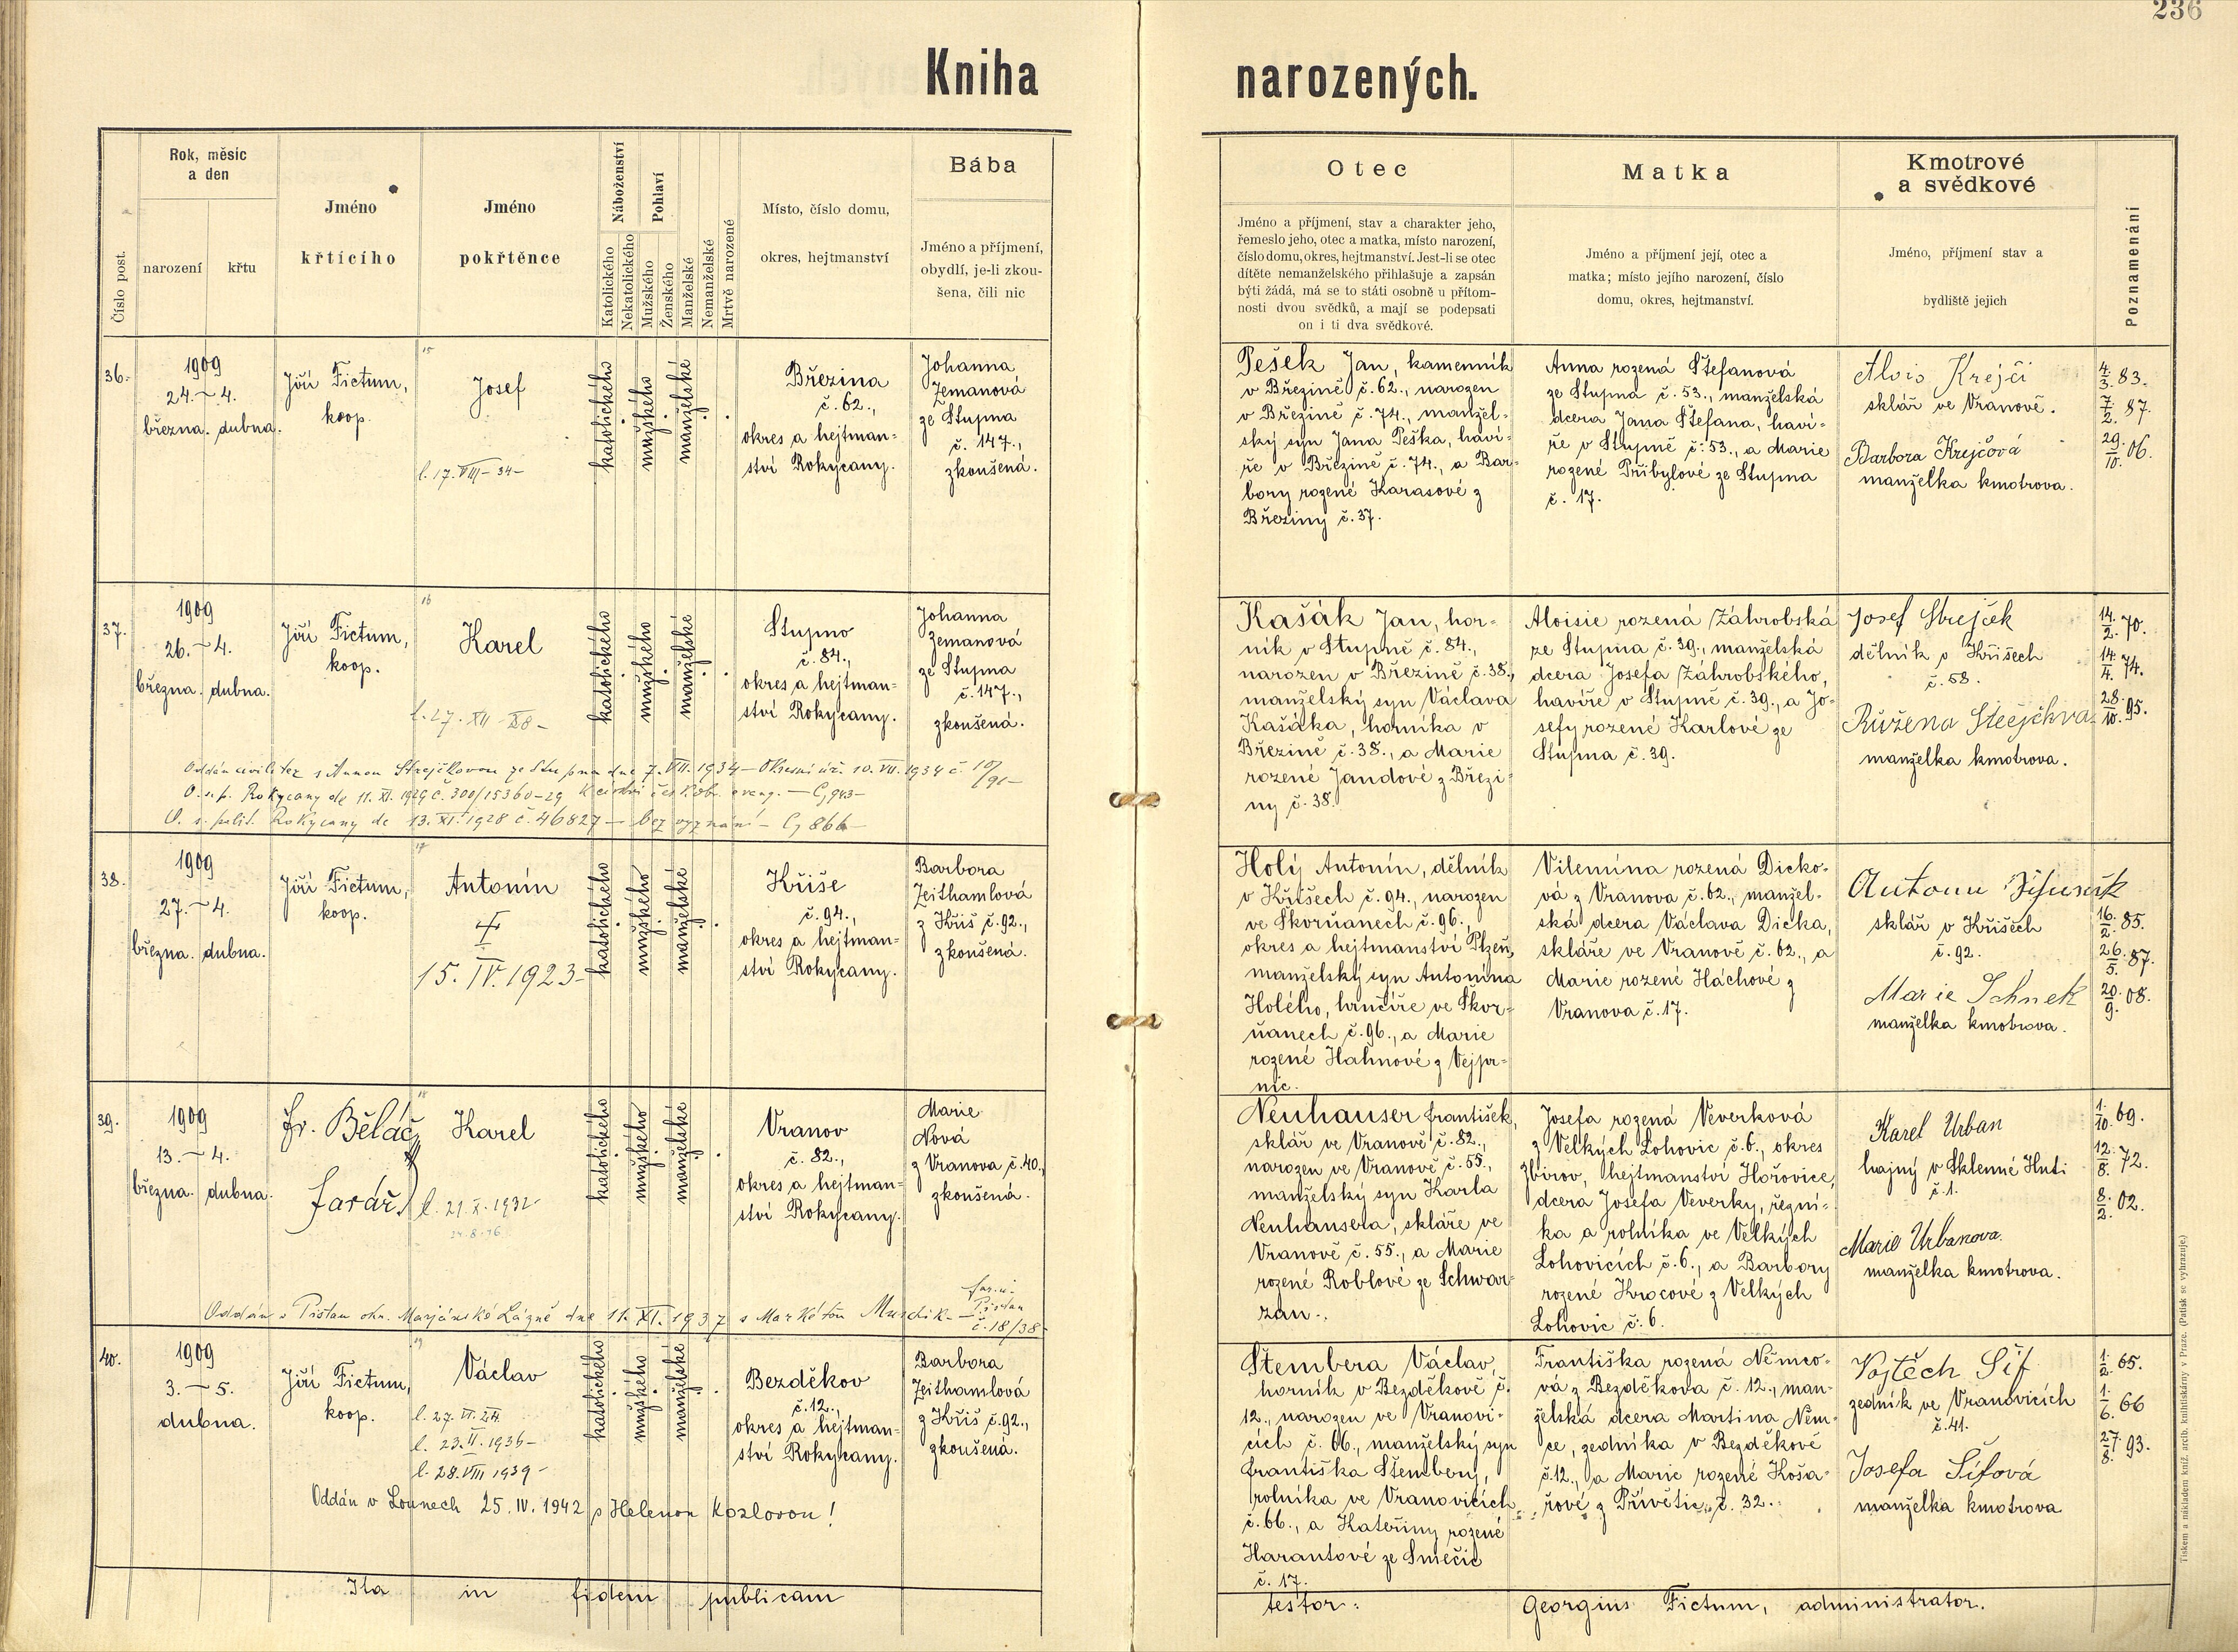 236
Kniha narozených.
Číslo post.
Rok, měsíc
a den
narození
křtu
Jméno
křtícího
Jméno
pokřtěnce
Náboženství
Katolického
Nekatolického
Pohlaví
Mužského
Ženského
Manželské
Nemanželské
Mrtvě narozené
Místo, číslo domu,
okres, hejtmanství
Bába
Jméno a příjmení,
obydlí, je-li zkou-
šena, čili nic
Otec
Jméno a příjmení, stav a charakter jeho,
řemeslo jeho, otec a matka, místo narození,
číslo domu, okres, hejtmanství. Jest-li se otec
dítěte nemanželského přihlašuje a zapsán
býti žádá, má se to státi osobně u přítom-
nosti dvou svědků, a mají se podepsati
on i ti dva svědkové.
Matka
Jméno a příjmení její, otec a
matka; místo jejího narození, číslo
domu, okres, hejtmanství.
Kmotrové
a svědkové
Jméno, příjmení stav a
bydliště jejich
Poznamenání
36.
1909
24. – 4.
března. dubna.
Jiří Fictum,
koop.
15
Josef
l. 17. VIII – 34 –
katolického
mužského
manželské
Březina
č. 62.,
okres a hejtman-
ství Rokycany.
Johanna
Zemanová
ze Stupna
č. 147.,
zkoušená.
Pešek Jan, kamenník
v Březině č. 62., narozen
v Březině č. 74., manžel-
ský syn Jana Peška, haví-
ře v Březině č. 74., a Bar-
bory rozené Karasové z
Březiny č. 37.
Anna rozená Štefanová
ze Stupna č. 53., manželská
dcera Jana Štefana, haví-
ře v Stupně č. 53., a Marie
rozené Přibylové ze Stupna
č. 17.
Alois Krejčí
sklář ve Vranově.
Barbora Krejčová
manželka kmotrova.
4/3. 83.
7/2. 87.
29./10. 06.
37.
1909
26. – 4.
března. dubna.
Jiří Fictum,
koop.
16
Karel
l. 27. XII
katolického
mužského
manželské
Stupno
č. 84.,
okres a hejtman-
ství Rokycany.
Johanna
Zemanová
ze Stupna
č. 147.,
zkoušená.
Oddán civilitez s Annou Strejčkovou ze Stupna dne 7. VII. 1934 – Okresní úř. 10. VII. 1934 č. 10/91 –
O. ú. p. Rokycany de 11. XI. 1929 č. 300/15360-29 k církvi česk. br. evang. – Čj 983 –
O. s. polit. Rokycany de 13. XI. 1928 č. 46827 – bez vyznání – Čj 866 –
Kašák Jan, hor-
ník v Stupně č. 84.,
narozen v Březině č. 38.,
manželský syn Václava
Kašáka, horníka v
Březině č. 38., a Marie
rozené Jandové z Březi-
ny č. 38.
Aloisie rozená Záhrobská
ze Stupna č. 39., manželská
dcera Josefa Záhrobského,
havíře v Stupně č. 39., a Jo-
sefy rozené Karlové ze
Stupna č. 39.
Josef Strejček
dělník v Křišech
č. 58.
Růžena
manželka kmotrova.
14./2. 70.
14./4. 74.
28./10. 95.
38.
1909
27. – 4.
března. dubna.
Jiří Fictum,
koop.
17
Antonín
†
15. IV. 1923 –
katolického
mužského
manželské
Kříše
č. 94.,
okres a hejtman-
ství Rokycany.
Barbora
Zeithamlová
z Kříš č. 92.,
zkoušená.
Holý Antonín, dělník
v Křišech č. 94., narozen
ve Skorňanech č. 96.,
okres a hejtmanství Plzeň,
manželský syn Antonína
Holého, hrnčíře ve Skor-
ňanech č. 96., a Marie
rozené Hahnové z Vejpr-
nic.
Vilemína rozená Dicko-
vá z Vranova č. 62., manžel-
ská dcera Václava Dicka,
skláře ve Vranově č. 62., a
Marie rozené Háchové z
Vranova č. 17.
Antonín
sklář v Křišech
č. 92.
Marie
manželka kmotrova.
16./2. 85.
26./5. 87.
20./9. 08.
39.
1909
13. – 4.
března. dubna.
Fr. Běláč,
farář.
18
Karel
l. 21. X. 1932
24.8.46
katolického
mužského
manželské
Vranov
č. 82.,
okres a hejtman-
ství Rokycany.
Marie
Nová
z Vranova č. 40.,
zkoušená.
Oddán v Pístau okr. Marjánské Lázně dne 11. XI. 1937 s Markétou – far. ú. Pístau č. 18/38 –
Neuhauser František,
sklář ve Vranově č. 82.,
narozen ve Vranově č. 55.,
manželský syn Karla
Neuhausera, skláře ve
Vranově č. 55., a Marie
rozené Roblové ze Schwar-
zau.
Josefa rozená Veverková
z Velkých Lohovic č. 6., okres
Zbirov, hejtmanství Hořovice,
dcera Josefa Veverky, řezní-
ka a rolníka ve Velkých
Lohovicích č. 6., a Barbory
rozené Krocové z Velkých
Lohovic č. 6.
Karel Urban
hajný v Sklenné Huti
č. 1.
Marie Urbanova.
manželka kmotrova.
1./10. 69.
12./8. 72.
8./2. 02.
40.
1909
3. – 5.
dubna.
Jiří Fictum,
koop.
19
Václav
l. 27. VI. 24.
l. 23. II. 1936 –
l. 28. VIII 1939 –
katolického
mužského
manželské
Bezděkov
č. 12.,
okres a hejtman-
ství Rokycany.
Barbora
Zeithamlová
z Kříš č. 92.,
zkoušená.
Oddán v Lounech 25. IV. 1942 s Helenou Kozlovou!
Štembera Václav,
horník v Bezděkově č.
12., narozen ve Vranovi-
cích č. 66., manželský syn
Františka Štembery,
rolníka ve Vranovicích
č. 66., a Kateřiny rozené
Harantové ze Smečic
č. 17.
Františka rozená Němco-
vá z Bezděkova č. 12., man-
želská dcera Martina Něm-
ce, zedníka v Bezděkově
č. 12., a Marie rozené Koša-
řové z Přívětic, č. 32.
Vojtěch Šíf
zedník ve Vranovicích
č. 41.
Josefa Šífová
manželka kmotrova
1./2. 65.
1./6. 66
27./8. 93.
Ita in fidem publicam testor. Georgius Fictum, administrator.
Tiskem a nákladem kníž. arcib. knihtiskárny v Praze. (Patisk se vyhrazuje.)